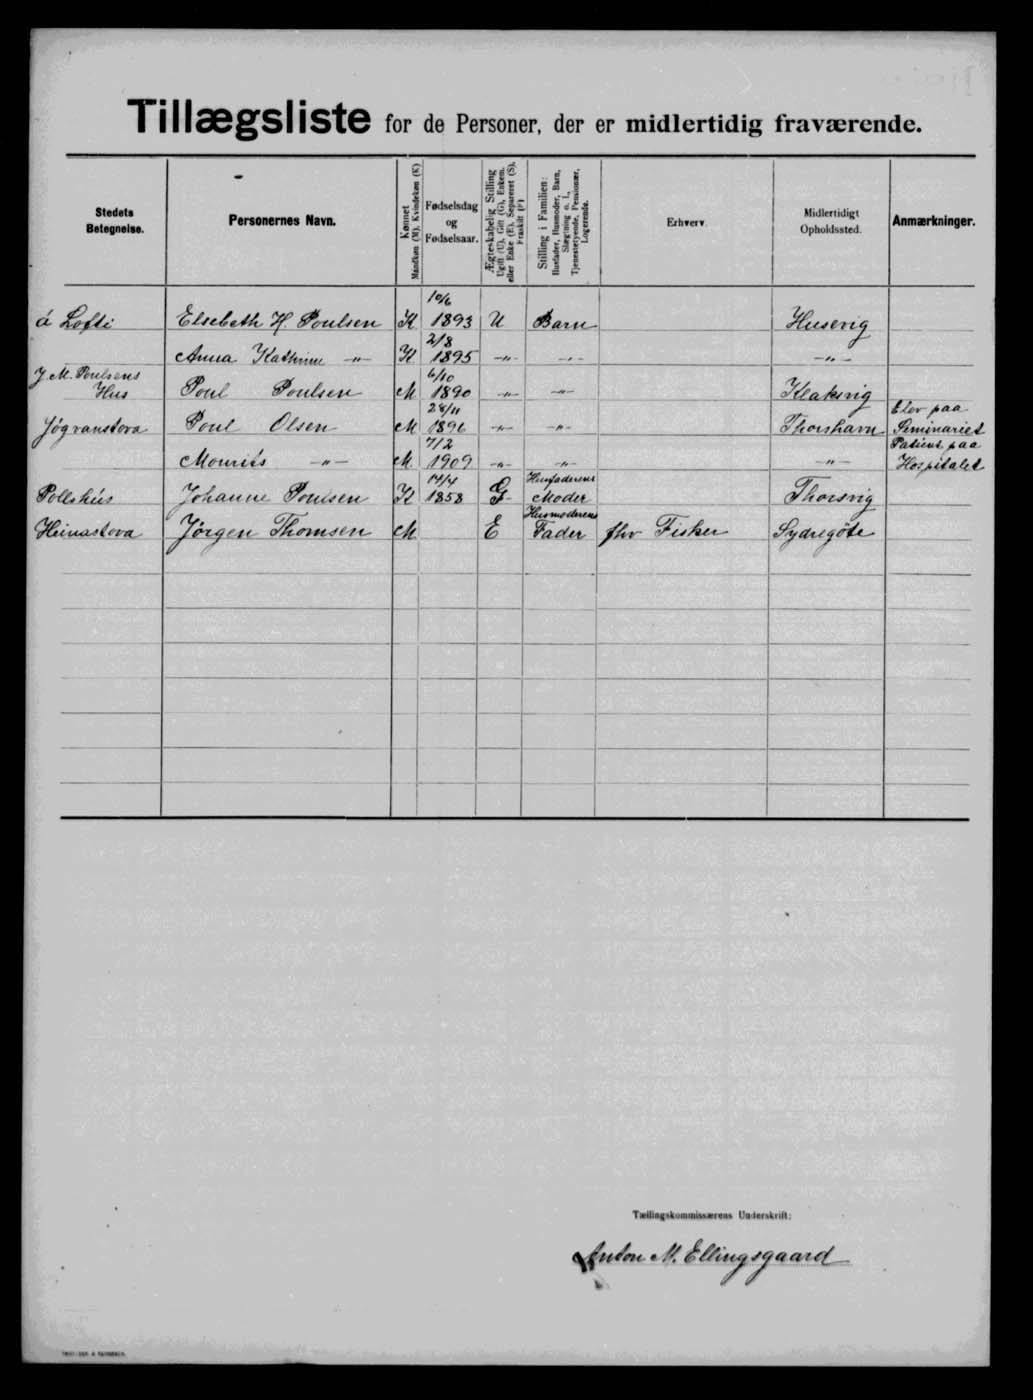 Tillægsliste for de Personer, der er midlertidig fraværende.
Stedets Betegnelse.
Personernes Navn.
Kønnet
Mandkøn (M), Kvindekøn (K)
Fødselsdag
og
Fødselsaar.
Ægteskabelig Stilling
Ugift (U), Gift (G), Enkem.
eller Enke (E), Separeret (S),
Fraskilt (F)
Stilling i Familien:
Husfader, Husmoder, Barn,
Slægtning o. l.,
Tjenestetyende, Pensionær,
Logerende.
Erhverv.
Midlertidigt
Opholdssted.
Anmærkninger.
á Lofti Elsebeth H. Poulsen K 10/6 1893 U Barn Husevig
Anna Kathrine -„- K 2/8 1895 -„- -„- -„-
J. M. Poulsens
Hus Poul Poulsen M 6/10 1890 -„- -„- Klaksvig
Jógvanstova Poul Olsen M 28/11 1896 -„- -„- Thorshavn Elev paa
Seminariet
Mourits -„- M 7/2 1909 -„- -„- -„- Patient paa
Hospitalet
Pollshús Johanne Poulsen K 14/4 1858 G Husfaderens
Moder Thorsvig
Heimastova Jörgen Thomsen M E Husmoderens
Fader fhv Fisker Sydregöte
Tællingskommissærens Underskrift:
Anton M. Ellingsgaard